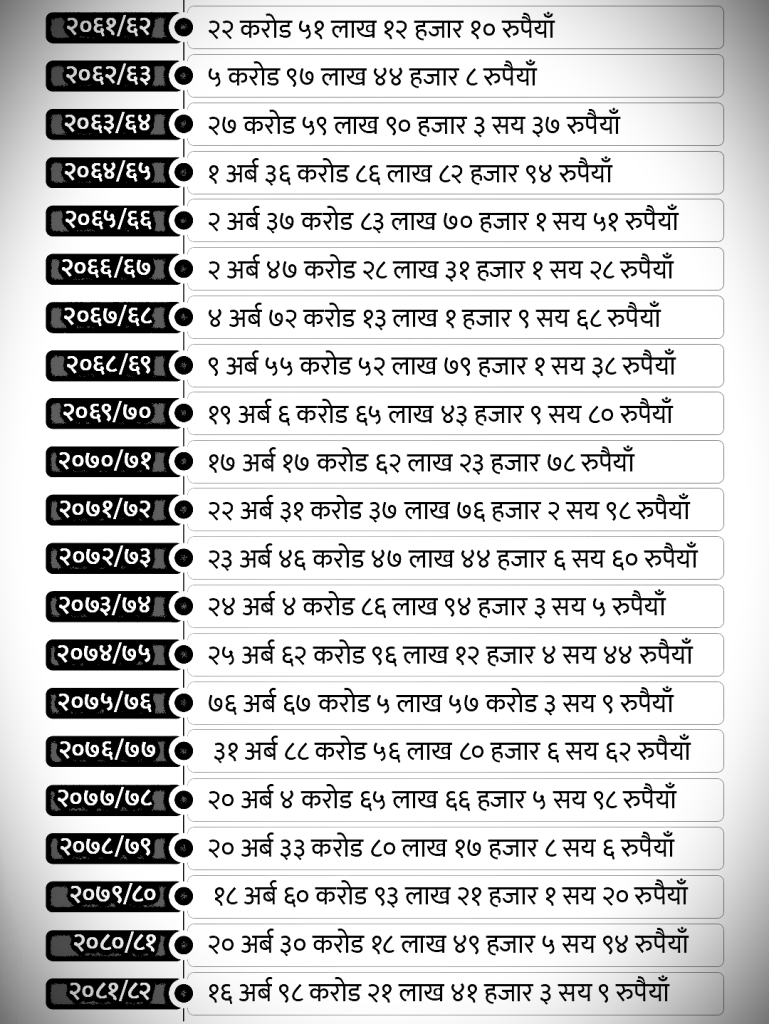 २०६१/६२ २२ करोड ५१ लाख १२ हजार १० रुपैयाँ
२०६२/६३ ५ करोड ९७ लाख ४४ हजार ८ रुपैयाँ
२०६३/६४ २७ करोड ५९ लाख ९० हजार ३ सय ३७ रुपैयाँ
२०६४/६५ १ अर्ब ३६ करोड ८६ लाख ८२ हजार ९४ रुपैयाँ
२०६५/६६ २ अर्ब ३७ करोड ८३ लाख ७० हजार १ सय ५१ रुपैयाँ
२०६६/६७ २ अर्ब ४७ करोड २८ लाख ३१ हजार १ सय २८ रुपैयाँ
२०६७/६८ ४ अर्ब ७२ करोड १३ लाख १ हजार ९ सय ६८ रुपैयाँ
२०६८/६९ ९ अर्ब ५५ करोड ५२ लाख ७९ हजार १ सय ३८ रुपैयाँ
२०६९/७० १९ अर्ब ६ करोड ६५ लाख ४३ हजार ९ सय ८० रुपैयाँ
२०७०/७१ १७ अर्ब १७ करोड ६२ लाख २३ हजार ७८ रुपैयाँ
२०७१/७२ २२ अर्ब ३१ करोड ३७ लाख ७६ हजार २ सय ९८ रुपैयाँ
२०७२/७३ २३ अर्ब ४६ करोड ४७ लाख ४४ हजार ६ सय ६० रुपैयाँ
२०७३/७४ २४ अर्ब ४ करोड ८६ लाख ९४ हजार ३ सय ५ रुपैयाँ
२०७४/७५ २५ अर्ब ६२ करोड ९६ लाख १२ हजार ४ सय ४४ रुपैयाँ
२०७५/७६ ७६ अर्ब ६७ करोड ५ लाख ५७ करोड ३ सय ९ रुपैयाँ
२०७६/७७ ३१ अर्ब ८८ करोड ५६ लाख ८० हजार ६ सय ६२ रुपैयाँ
२०७७/७८ २० अर्ब ४ करोड ६५ लाख ६६ हजार ५ सय ९८ रुपैयाँ
२०७८/७९ २० अर्ब ३३ करोड ८० लाख १७ हजार ८ सय ६ रुपैयाँ
२०७९/८० १८ अर्ब ६० करोड ९३ लाख २१ हजार १ सय २० रुपैयाँ
२०८०/८१ २० अर्ब ३० करोड १८ लाख ४९ हजार ५ सय ९४ रुपैयाँ
२०८१/८२ १६ अर्ब ९८ करोड २१ लाख ४१ हजार ३ सय ९ रुपैयाँ